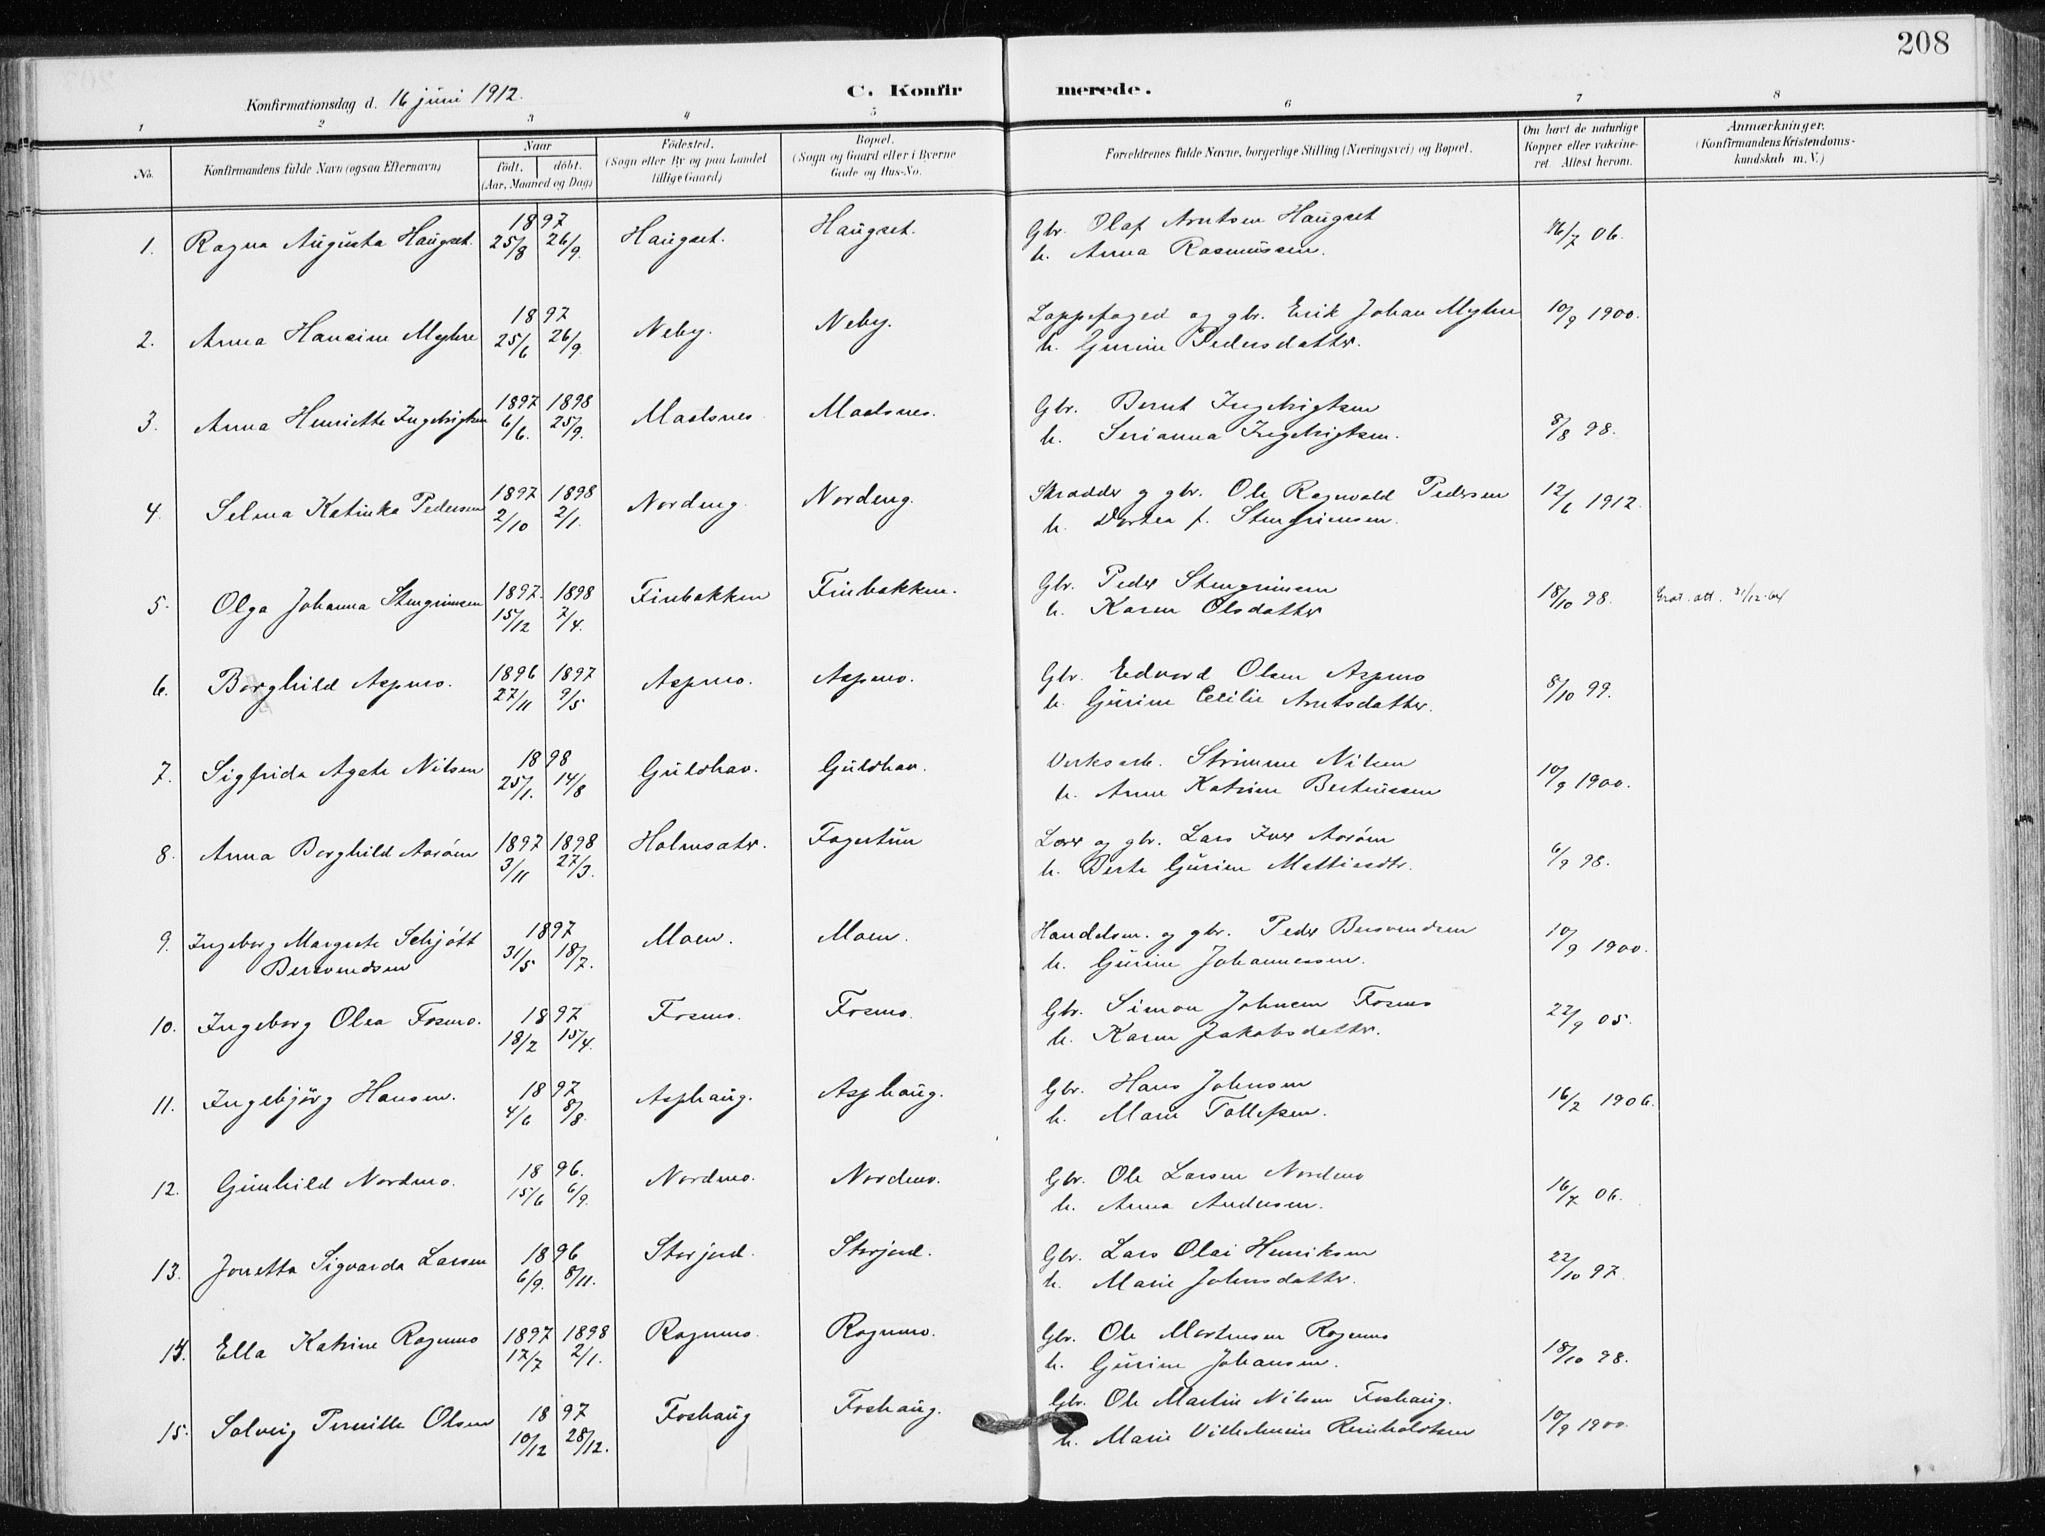 208
Konfirmationsdag d. 16 juni 1912.
C. Konfirmerede.
1 2 3 4 5 6 7 8
No. Konfirmandens fulde Navn (ogsaa Efternavn) Naar født. døbt. (Aar, Maaned og Dag) Fødested. (Sogn eller By og paa Landet tillige Gaard) Bopæl. (Sogn og Gaard eller i Byerne Gade og Hus-No. Forældrenes fulde Navne, borgerlige Stilling (Næringsvei) og Bopæl. Om havt de naturlige Kopper eller vakcineret. Attest herom. Anmærkninger. (Konfirmandens Kristendomskundskab m. V.)
1. Ragna Augusta Haugset. 1897 25/8 26/9. Haugset. Haugset. Gbr. Olaf Arntsen Haugset
h. Anna Rasmussen. 16/7 06.
2. Anna Hansine Myhre 1897 25/6 26/9. Neby. Neby. Loppefoged og gbr. Erik Johan Myhre
h. Gurine Pedersdatter. 10/9 1900.
3. Anna Henriette Ingebrigtsen 1897 6/6. 1898 25/9. Maalsnes Maalsnes. Gbr. Bernt Ingebrigtsen
h. Serianna Ingebrigtsen. 8/8 98.
4. Selma Katinka Pedersen 1897 2/10 1898 2/1. Nordeng. Nordeng. Skradder og gbr. Ole Ragnvald Pedersen
h. Dortea f. Stengrimsen. 12/6 1912.
5. Olga Johanna Stengrimsen 1897. 15/12 1898 7/4. Finbakken Finbakken. Gbr. Peder Stengrimsen
h. Karen Olsdatter 18/10 98. att. 31/12-64
6. Borghild Aspmo. 1896 27/11 1897 9/5 Aspmo. Aspmo. Gbr. Edvard Olsen Aspmo
h. Gurine Cecilie Arntsdatter. 8/10 99.
7. Sigfrida Agate Nilsen 1898 25/1. 14/8 Guldhav. Guldhav. Verksarb. Strimme Nilsen
h. Anne Katrine Berteussen 10/9 1900.
8. Anna Borghild Aarøen 1897 3/11 1898 27/3. Holmsatr. Fagertun Lærer og gbr. Lars Iver Aarøen
h. Berte Gurine Mattiasdtr. 6/9 98.
9. Ingeborg Margrete Schjøtt
Bersvendsen 1897 31/5 18/7. Moen. Moen. Handelsm. og gbr. Peder Bersvendsen
h. Gurine Johannessen. 10/9 1900.
10. Ingeborg Olea Fosmo. 1897 18/2 15/4. Fosmo. Fosmo. Gbr. Simon Johnsen Fosmo
h. Karen Jakobsdatter. 22/9 05.
11. Ingebjørg Hansen. 1897 4/6 8/8. Asphaug. Asphaug. Gbr. Hans Johnsen
h. Marie Tollefsen. 16/7 1906.
12. Gunhild Nordmo. 1896. 15/6 6/9. Nordmo. Nordmo. Gbr. Ole Larsen Nordmo
h. Anna Andersen. 16/7 06.
13. Jonetta Sigvarda Larsen 1896 6/9. 8/11. Storjord. Storjord. Gbr. Lars Olai Henriksen
h. Marie Johnsdatter. 22/10 97.
14. Ella Katrine Rognmo 1897 17/7 1898 2/1. Rognmo. Rognmo. Gbr. Ole Mortensen Rognmo
h. Gurine Johansen. 18/10 98.
15. Solveig Pernille Olsen 1897 10/12 28/12. Foshaug Foshaug. Gbr. Ole Martin Nilsen Foshaug.
h. Marie Vilhelmine Reinholdtsen 10/9 1900.